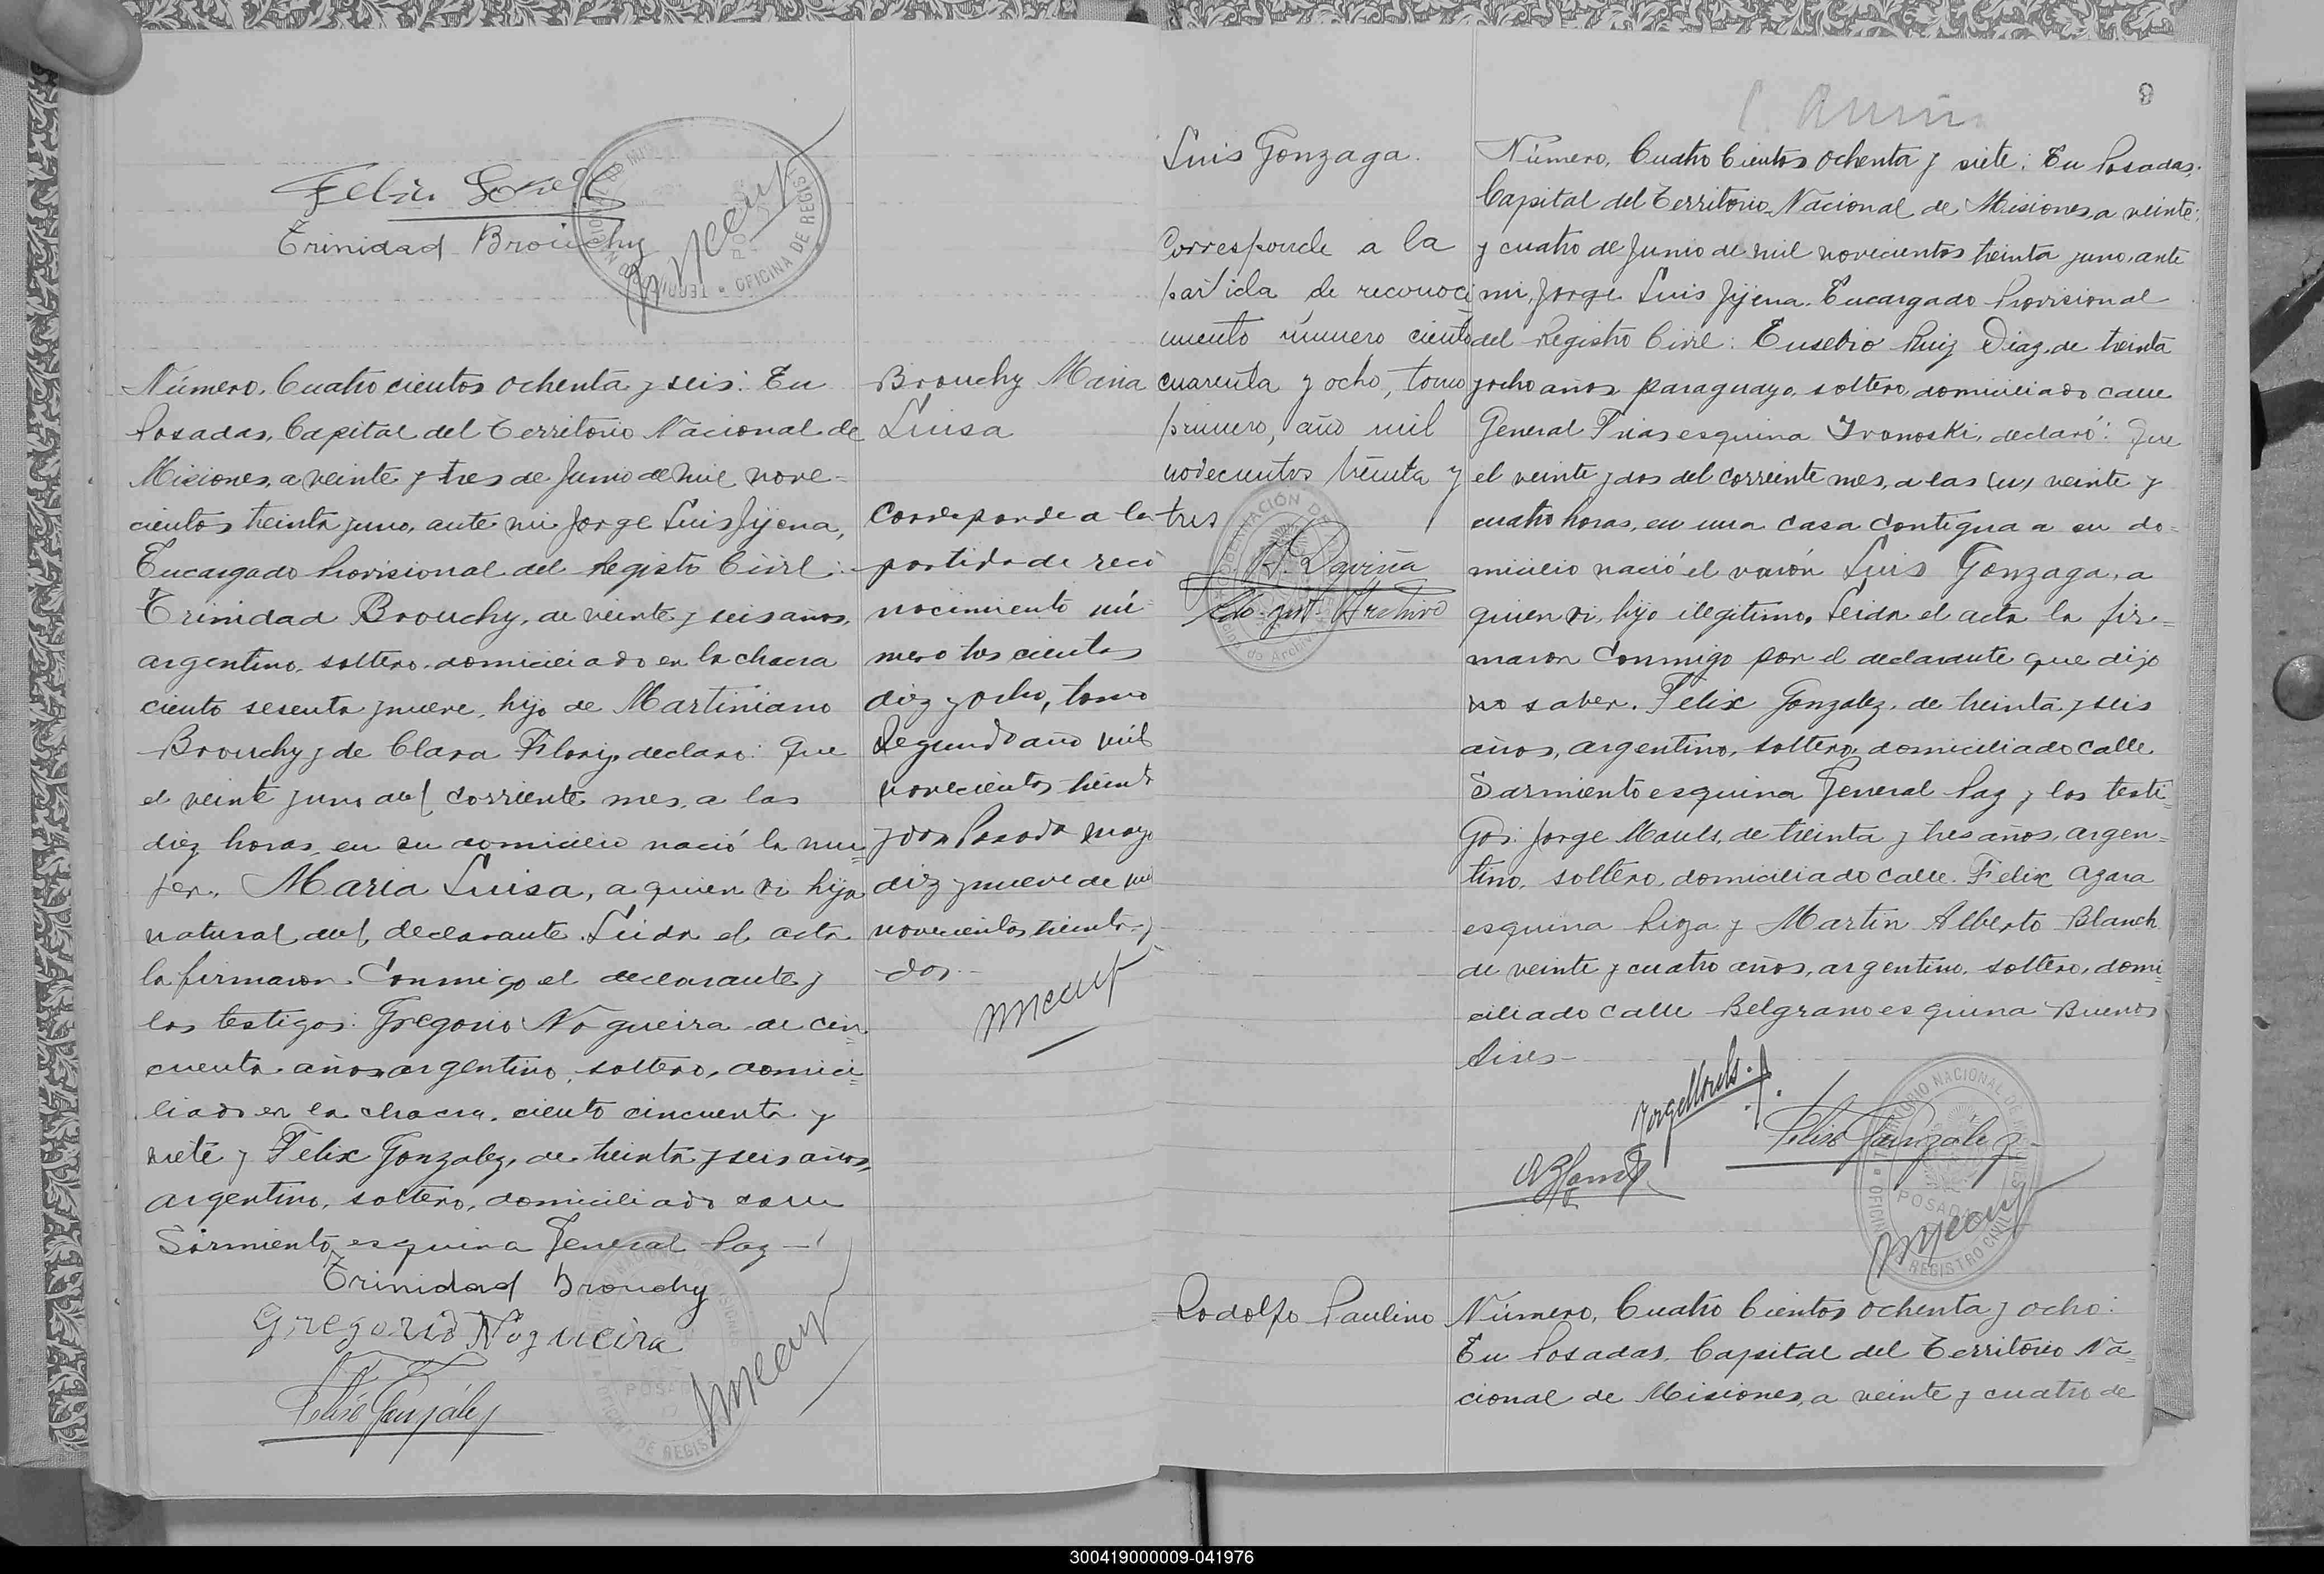 Trinidad Brouchy
Número, Cuatro cientos ochenta y seis: En
Posadas, Capital del Territorio Nacional de
Misiones, a veinte y tres de Junio de mil nove-
cientos treinta y uno, ante mi Jorge Luis Jijena,
Encargado Provisional del Registro Civil:
Trinidad Brouchy, de veinte y seis años,
argentino, soltero, domiciliado en la chacra
ciento sesenta y nueve, hijo de Martiniano
Brouchy y de Clara Flory, declaró: Que
el veinte y uno del corriente mes, a las
diez horas, en su domicilio nació la mu=
jer, Maria Luisa, a quien vi hija
natural del declarante. Leida el acta
la firmaron conmigo el declarante y
los testigos: Gregorio Nogueira de cin-
cuenta años, argentino, soltero, domici=
liado en la chacra ciento cincuenta y
siete y Félix Gonzalez, de treinta y seis años,
argentino, soltero, domiciliado calle
Sarmiento esquina General Paz —
Trinidad Brouchy
Gregorio Nogueira
Felix González
Brouchy Maria
Luisa
Corresponde a la
partida de reco
nocimiento nú
mero tres cientos
diez y ocho, tomo
segundo año mil
novecientos treinta
y dos Posadas mayo
diez y nueve de mil
novecientos treinta y
dos.—
9
Luis Gonzaga.
Corresponde a la
partida de reconoci
miento número ciento
cuarenta y ocho, tomo
primero, año mil
novecientos treinta y
tres
Archivo
Número, Cuatro Cientos ochenta y siete: En Posadas,
Capital del Territorio Nacional de Misiones a veinte
y cuatro de Junio de mil novecientos treinta y uno, ante
mi, Jorge Luis Jijena, Encargado Provisional
del Registro Civil: Eusebio Ruiz Diaz, de treinta
y ocho años, paraguayo, soltero, domiciliado calle
General Frias esquina Ivanoski, declaró: Que
el veinte y dos del corriente mes, a las veinte y
cuatro horas, en una casa contigua a su do=
micilio nació el varón Luis Gonzaga, a
quien vi, hijo ilegítimo. Leida el acta la fir=
maron conmigo por el declarante que dijo
no saber. Félix Gonzalez, de treinta y seis
años, argentino, soltero, domiciliado calle
Sarmiento esquina General Paz y los testi=
gos: Jorge Mouls, de treinta y tres años, argen=
tino, soltero, domiciliado calle Felix Azara
esquina Rioja y Martin Alberto Blanch
de veinte y cuatro años, argentino, soltero, domi=
ciliado calle Belgrano esquina Buenos
Aires—
Jorge Mouls.
Felix Gonzalez
TERRITORIO NACIONAL DE MISIONES
POSADAS
OFICINA DE REGISTRO CIVIL
Rodolfo Paulino
Número, Cuatro Cientos ochenta y ocho:
En Posadas, Capital del Territorio Na=
cional de Misiones, a veinte y cuatro de
300419000009-041976